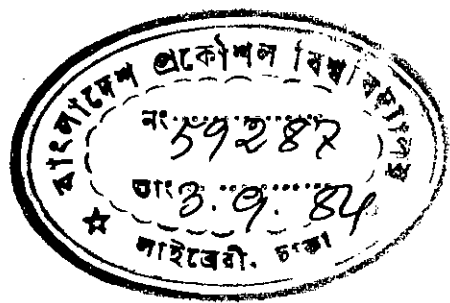 বাংলাদেশ প্রকৌশল বিশ্ববিদ্যালয়
নং 59287
তাং 3.9.84
লাইব্রেরী, ঢাকা